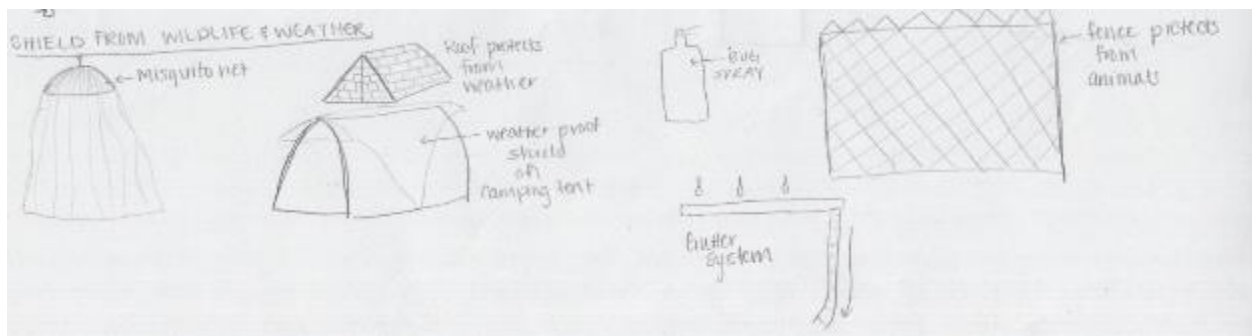 SHIELD FROM WILDLIFE & WEATHER
Misquito net
Roof protects
from
weather
weather proof
shield
on
camping tent
BUG
SPRAY
fence protects
from
animals
Gutter
system